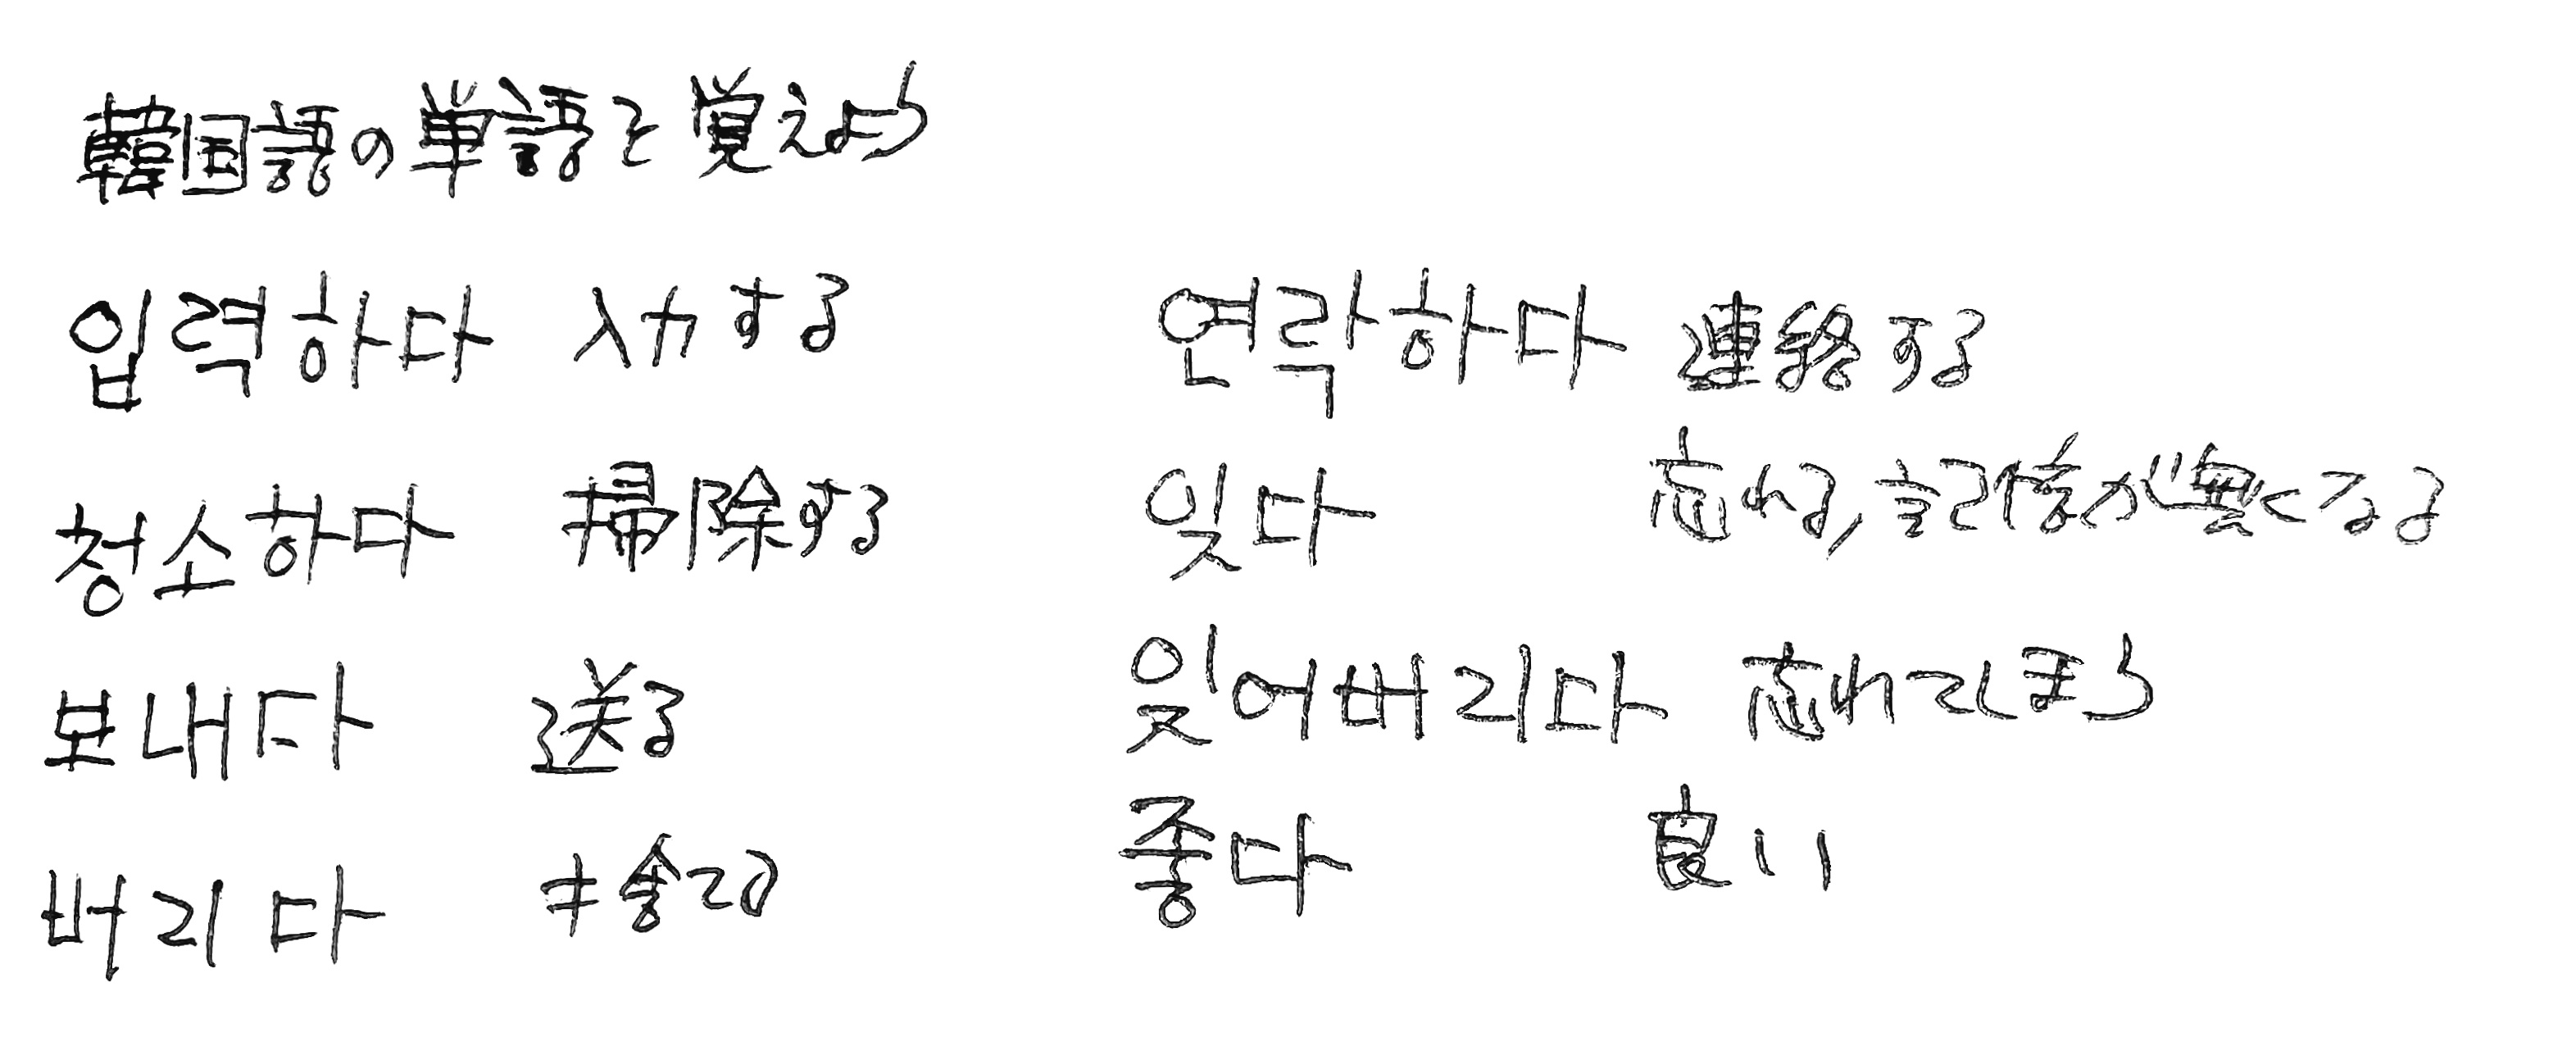 韓国語の単語を覚えよう
입력하다 入力する
청소하다 掃除する
보내다 送る
버리다 捨てる
연락하다 連絡する
잊다 忘れる,記憶が無くなる
잊어버리다 忘れてしまう
좋다 良い